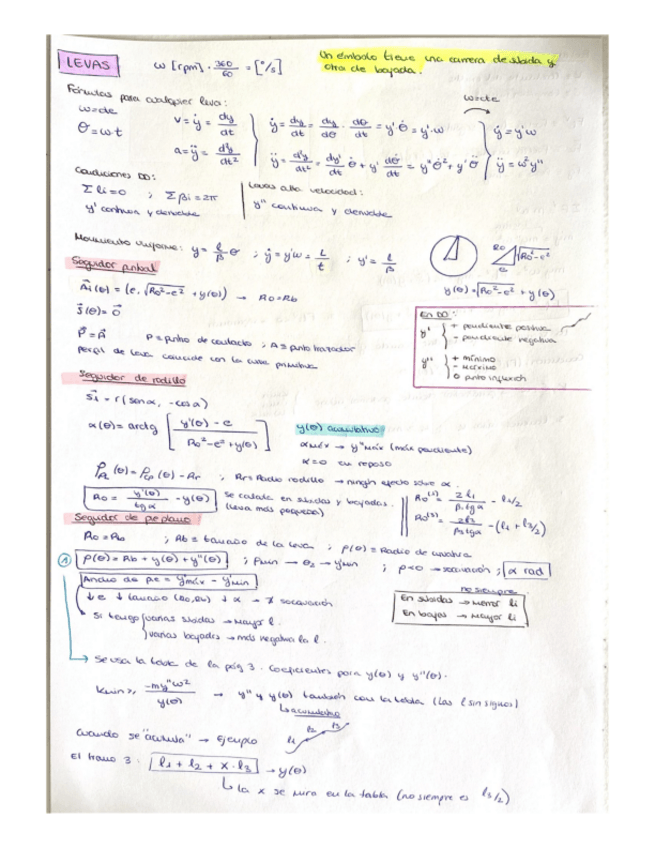 LEVAS
ω [rpm] · 360/60 = [°/s]
Un émbolo tiene una carrera de subida y
otra de bajada.
Fórmulas para cualquier leva:
ω=cte
θ = ω·t
v = ẏ = dy/dt
a = ÿ = d²y/dt²
ẏ = dy/dt = dy/dθ · dθ/dt = y'θ̇ = y'·ω
ÿ = d²y/dt² = dy'/dt θ̇ + y' dθ̇/dt = y''θ̇² + y'θ̈
ω=cte
ẏ = y'ω
ÿ = ω²y''
Condiciones DD:
Σ li = 0 ; Σ βi = 2π
y' continua y derivable
Levas alta velocidad:
y'' continua y derivable
Movimiento uniforme: y = l/β θ ; ẏ = y'ω = L/t ; y' = l/β
R0
√R0²-e²
e
y(θ) = √R0²-e² + y(θ)
Seguidor puntual
A1(θ) = (e, √R0²-e² + y(θ)) → R0=Rb
s(θ) = 0
P = A P = punto de contacto ; A = punto trazador
perfil de leva coincide con la curva primitiva
En DD:
y' + pendiente positiva
- pendiente negativa
y'' + mínimo
- máximo
0 punto inflexión
Seguidor de rodillo
s1 = r(sen α, -cos α)
α(θ) = arctg [ y'(θ) - e / R0²-e²+y(θ) ]
y(θ) acumulativo
α máx → y'' máx (máx pendiente)
α=0 en reposo
Rr = Radio rodillo → ningún efecto sobre α.
R0 = y'(θ)/tg α - y(θ)
Se calcula en subidas y bajadas.
(leva más pequeña)
R0⁽¹⁾ = 2l1/β1 tg α - l1/2
R0⁽³⁾ = 2l3/β3 tg α - (l1 + l3/2)
Seguidor de pie plano
R0 = Rb ; Rb = tamaño de la leva ; ρ(θ) = Radio de curvatura
① ρ(θ) = Rb + y(θ) + y''(θ) ; ρmin → θ2 → y''min ; ρ<0 → socavación ; α rad
Ancho de pie = y'máx - y'min
↓e ↓ tamaño (R0,Rb) ↓ α → socavación
no siempre
En subidas → menor li
En bajas → mayor li
Si tengo varias subidas → mayor l.
varias bajadas → más negativa la l.
Se usa la tabla de la pág 3. Coeficientes para y(θ) y y''(θ).
Kmin ≥ -my''ω²/y(θ) → y'' y y(θ) también con la tabla (las l sin signo)
↳ acumulativo
Cuando se "acumula" → Ejemplo l1 l2 l3
El tramo 3: l1 + l2 + x·l3 → y(θ)
↳ la x se mira en la tabla (no siempre es l3/2)